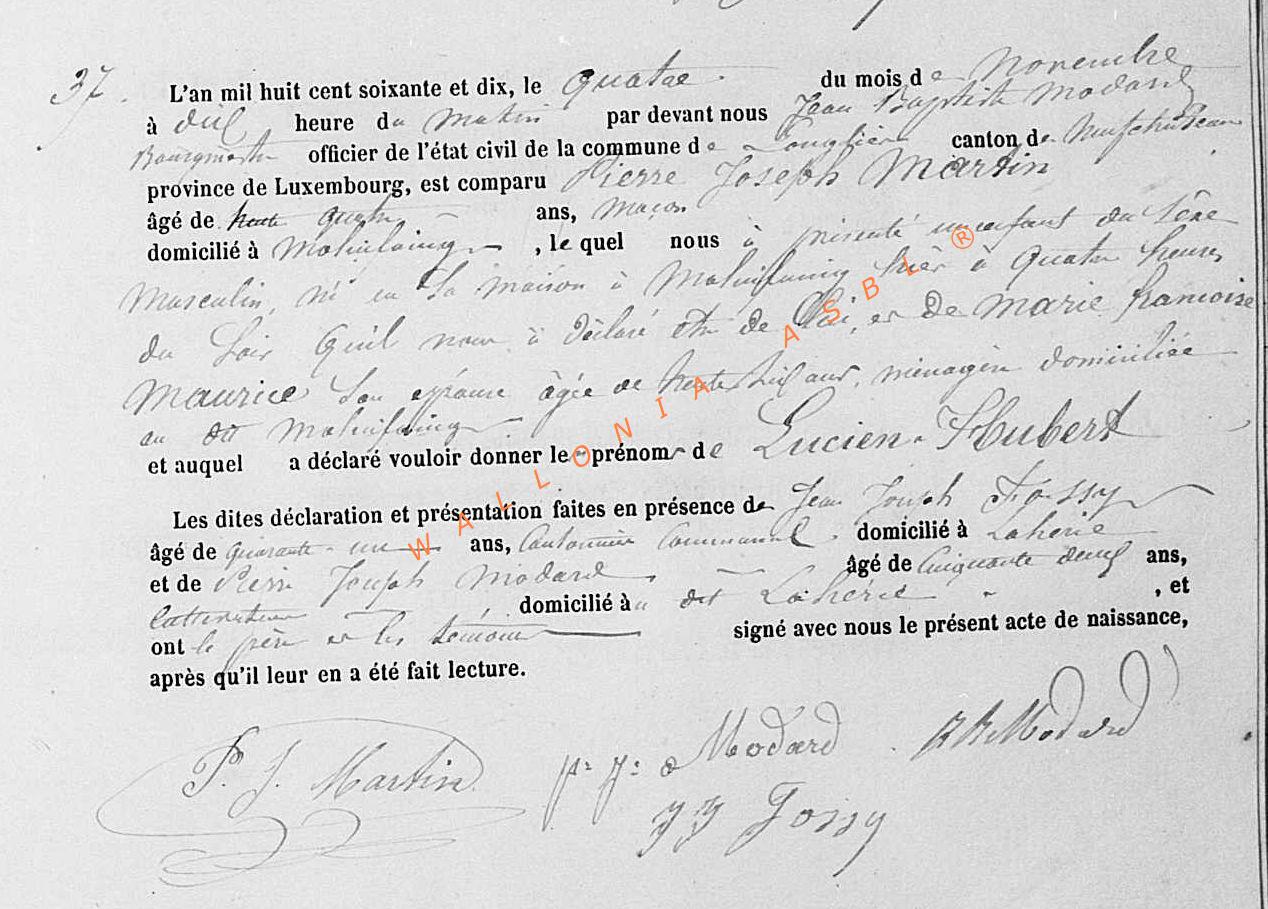 37.
L'an mil huit cent soixante et dix, le quatre du mois de novembre
à dix heure du matin par devant nous Jean Baptiste Modard
Bourgmestre officier de l'état civil de la commune de Longlier canton de Neufchateau
province de Luxembourg, est comparu Pierre Joseph Martin
âgé de trente quatre ans, maçon
domicilié à Molinfaing, le quel nous à présenté un enfant du sexe
masculin, né en sa maison à Molinfaing hier à quatre heures
du soir qu'il nous à déclaré être de lui, et de marie francoise
maurice son épouse âgée de trente huit ans, ménagère domiciliée
au dit Molinfaing
et auquel a déclaré vouloir donner le prénom de Lucien-Hubert
Les dites déclaration et présentation faites en présence de Jean Joseph Fossy
âgé de quarante-un ans, Cantonnier Communal, domicilié à Laherie
et de Pierre Joseph Modard, âgé de cinquante deux ans,
Cultivateur domicilié au dit Lahérie, et
ont le père et les témoins signé avec nous le présent acte de naissance,
après qu'il leur en a été fait lecture.
P. J. Martin Modard Modard
JJ Fossy
WALLONIA ASBL ®